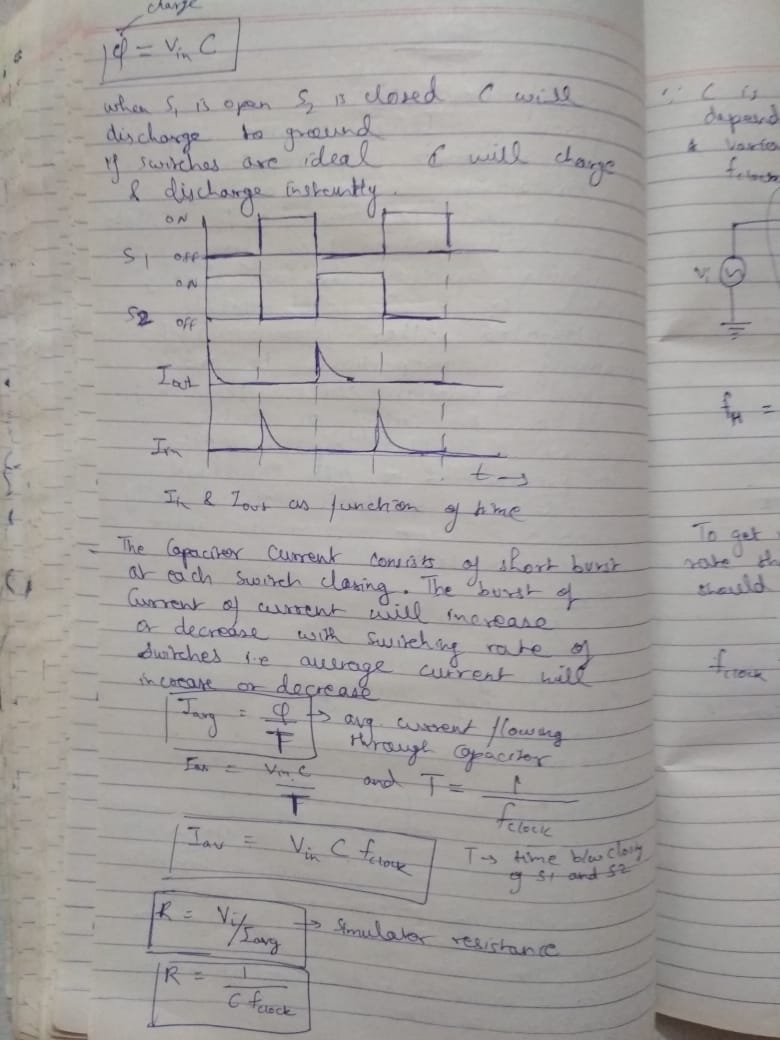 charge
φ = Vin C
when S1 is open S2 is closed C will
discharge to ground
if switches are ideal C will charge
& discharge instantly.
ON
S1 OFF
ON
S2 OFF
Iout
Iin
t →
In & Iout as function of time
= The Capacitor Current consists of short burst
at each switch closing. The burst of
Current of current will increase
or decrease with switching rate of
switches i.e average current will
increase or decrease
Iavg = φ/T → avg current flowing
through capacitor
Iav = Vin C/T and T = 1/fclock
Iav = Vin C fclock
T → time b/w closing
of S1 and S2
R = Vi/Iavg → Simulator resistance
R = 1/C fclock
∵ C is
depend
&
fclock
Vi
fH =
To get
rate th
should
fclock